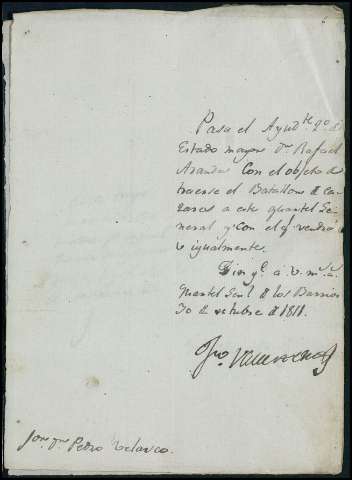 Pasa el Ayud.te 2.º de
Estado mayor D.n Rafael
Aranda Con el objeto de
traerse el Batallon de Ca-
zores a este quartel Ge-
neral, y con el q.e vendrá
V igualmente.
Dios g.e á V. m.s a.s
Quartel Gral de los Barrios
30 de octubre de 1811.
Sor. Dn Pedro Velasco.